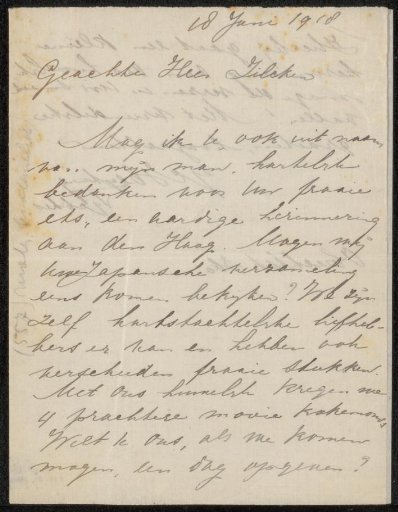 18 Juni 1918
Geachte Heer Zilcken
Mag ik U ook uit naam
van mijn man, hartelijk
bedanken voor Uw fraaie
ets, een aardige herinnering
aan den Haag. Mogen wij
Uw Japansche verzameling
eens komen bekijken? We zijn
zelf hartstochtelijke liefheb-
bers er van en hebben ook
verscheiden fraaie stukken.
Met ons huwelijk kregen we
4 prachtige mooie kakemono's
Wilt U ons, als we komen
mogen, een dag opgeven?